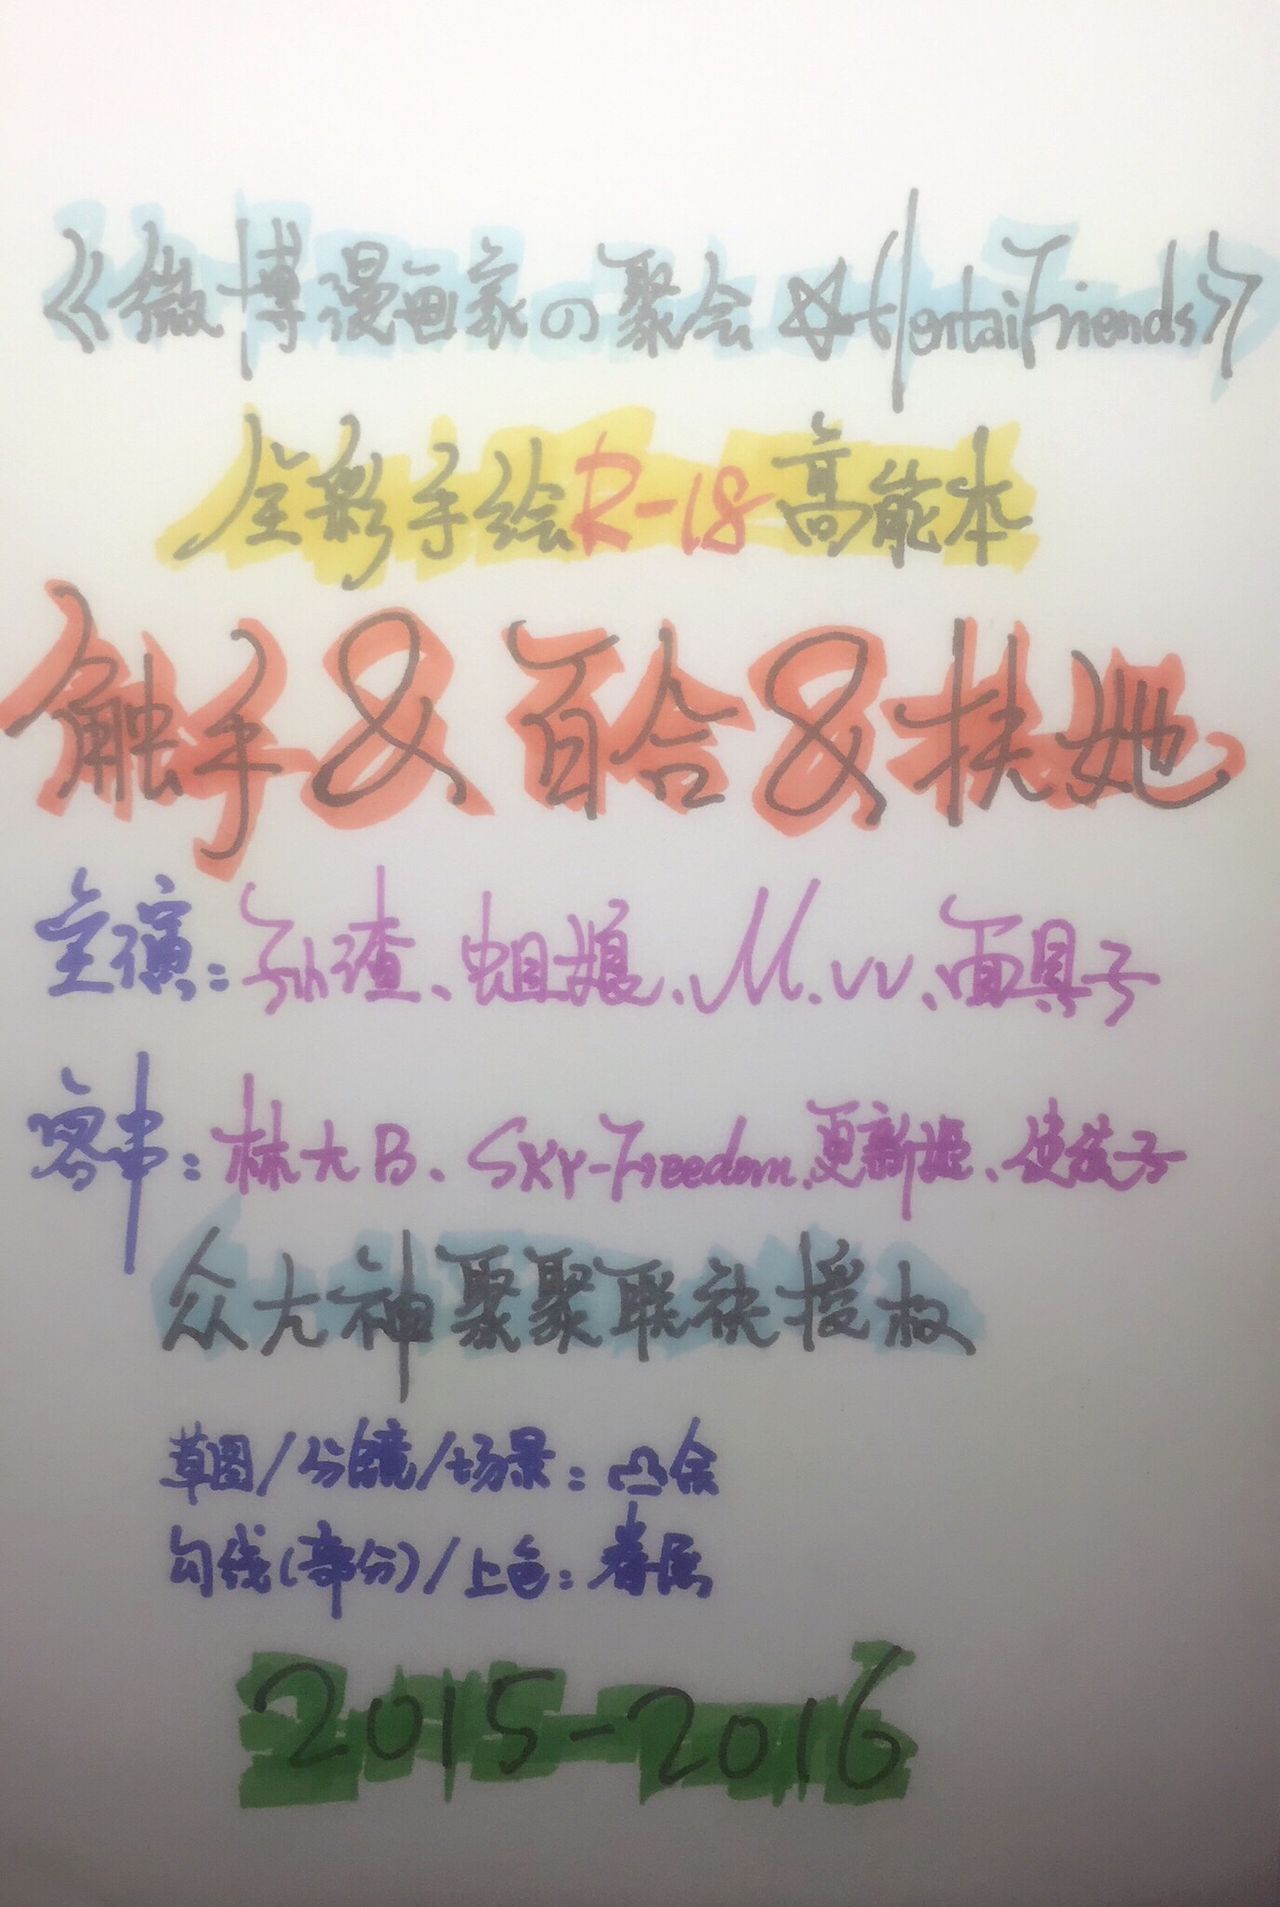 《微博漫画家の聚会☆HentaiFriends》
全彩手绘R-18高能本
触手&百合&扶她
主演：孙渣、蛆娘、M.W、面具子
客串：林大B、Sky-Freedom、更新姬、使徒子
众大神聚聚联袂授权
草图/分镜/场景：凸
勾线(部分)/上色：春
2015-2016